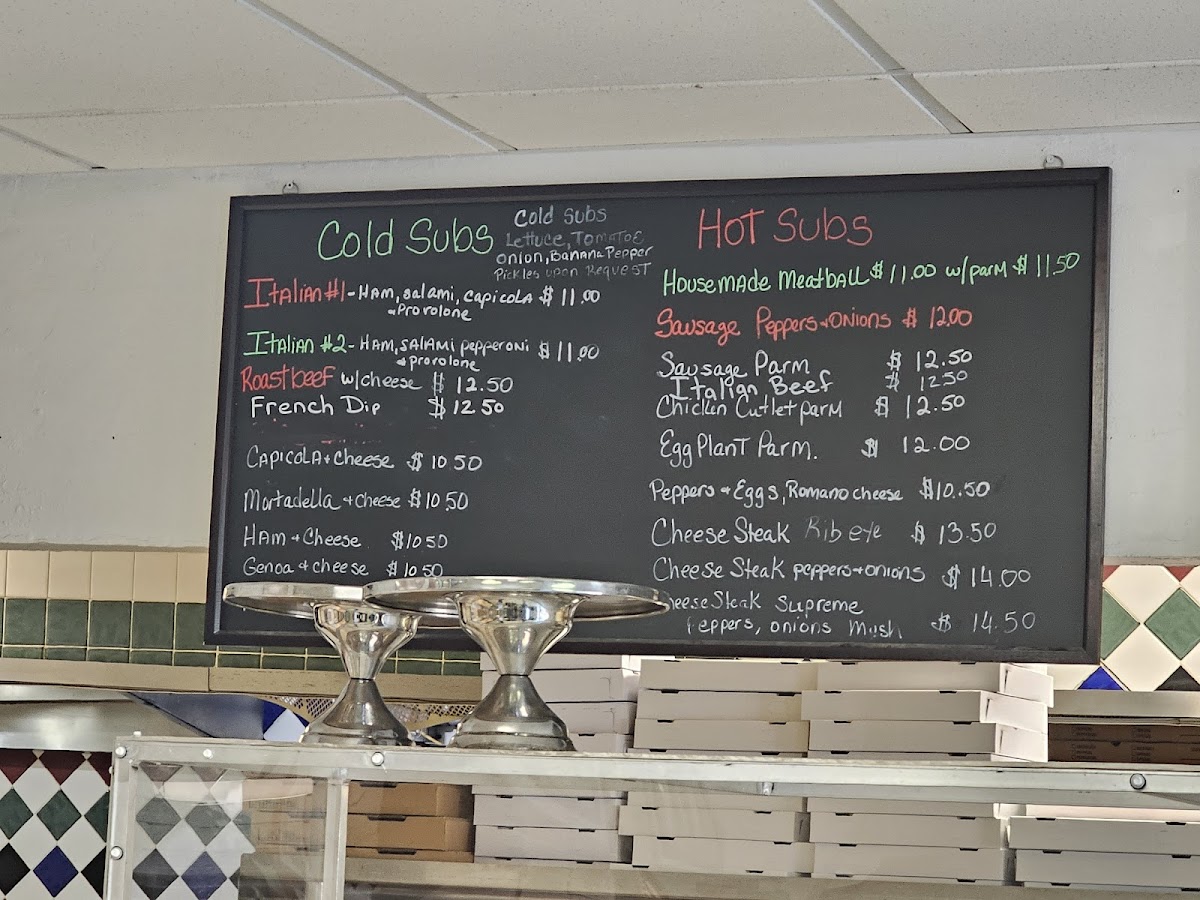 Cold Subs
Cold Subs
Lettuce, Tomatoe
Onion, Banana Pepper
Pickles upon Request
Italian #1 - Ham, salami, capicola $ 11.00
+ Provolone
Italian #2 - Ham, salami pepperoni $ 11.00
+ provolone
Roastbeef w/cheese $ 12.50
French Dip $ 12.50
Capicola + cheese $ 10.50
Mortadella + cheese $ 10.50
Ham + Cheese $ 10.50
Genoa + cheese $ 10.50
Hot Subs
Housemade Meatball $ 11.00 w/parm $ 11.50
Sausage Peppers + Onions $ 12.00
Sausage Parm $ 12.50
Italian Beef $ 12.50
Chicken Cutlet parm $ 12.50
Egg Plant Parm. $ 12.00
Peppers + Eggs, Romano cheese $10.50
Cheese Steak Rib eye $ 13.50
Cheese Steak peppers + onions $ 14.00
Cheese Steak Supreme
Peppers, onions Mush $ 14.50